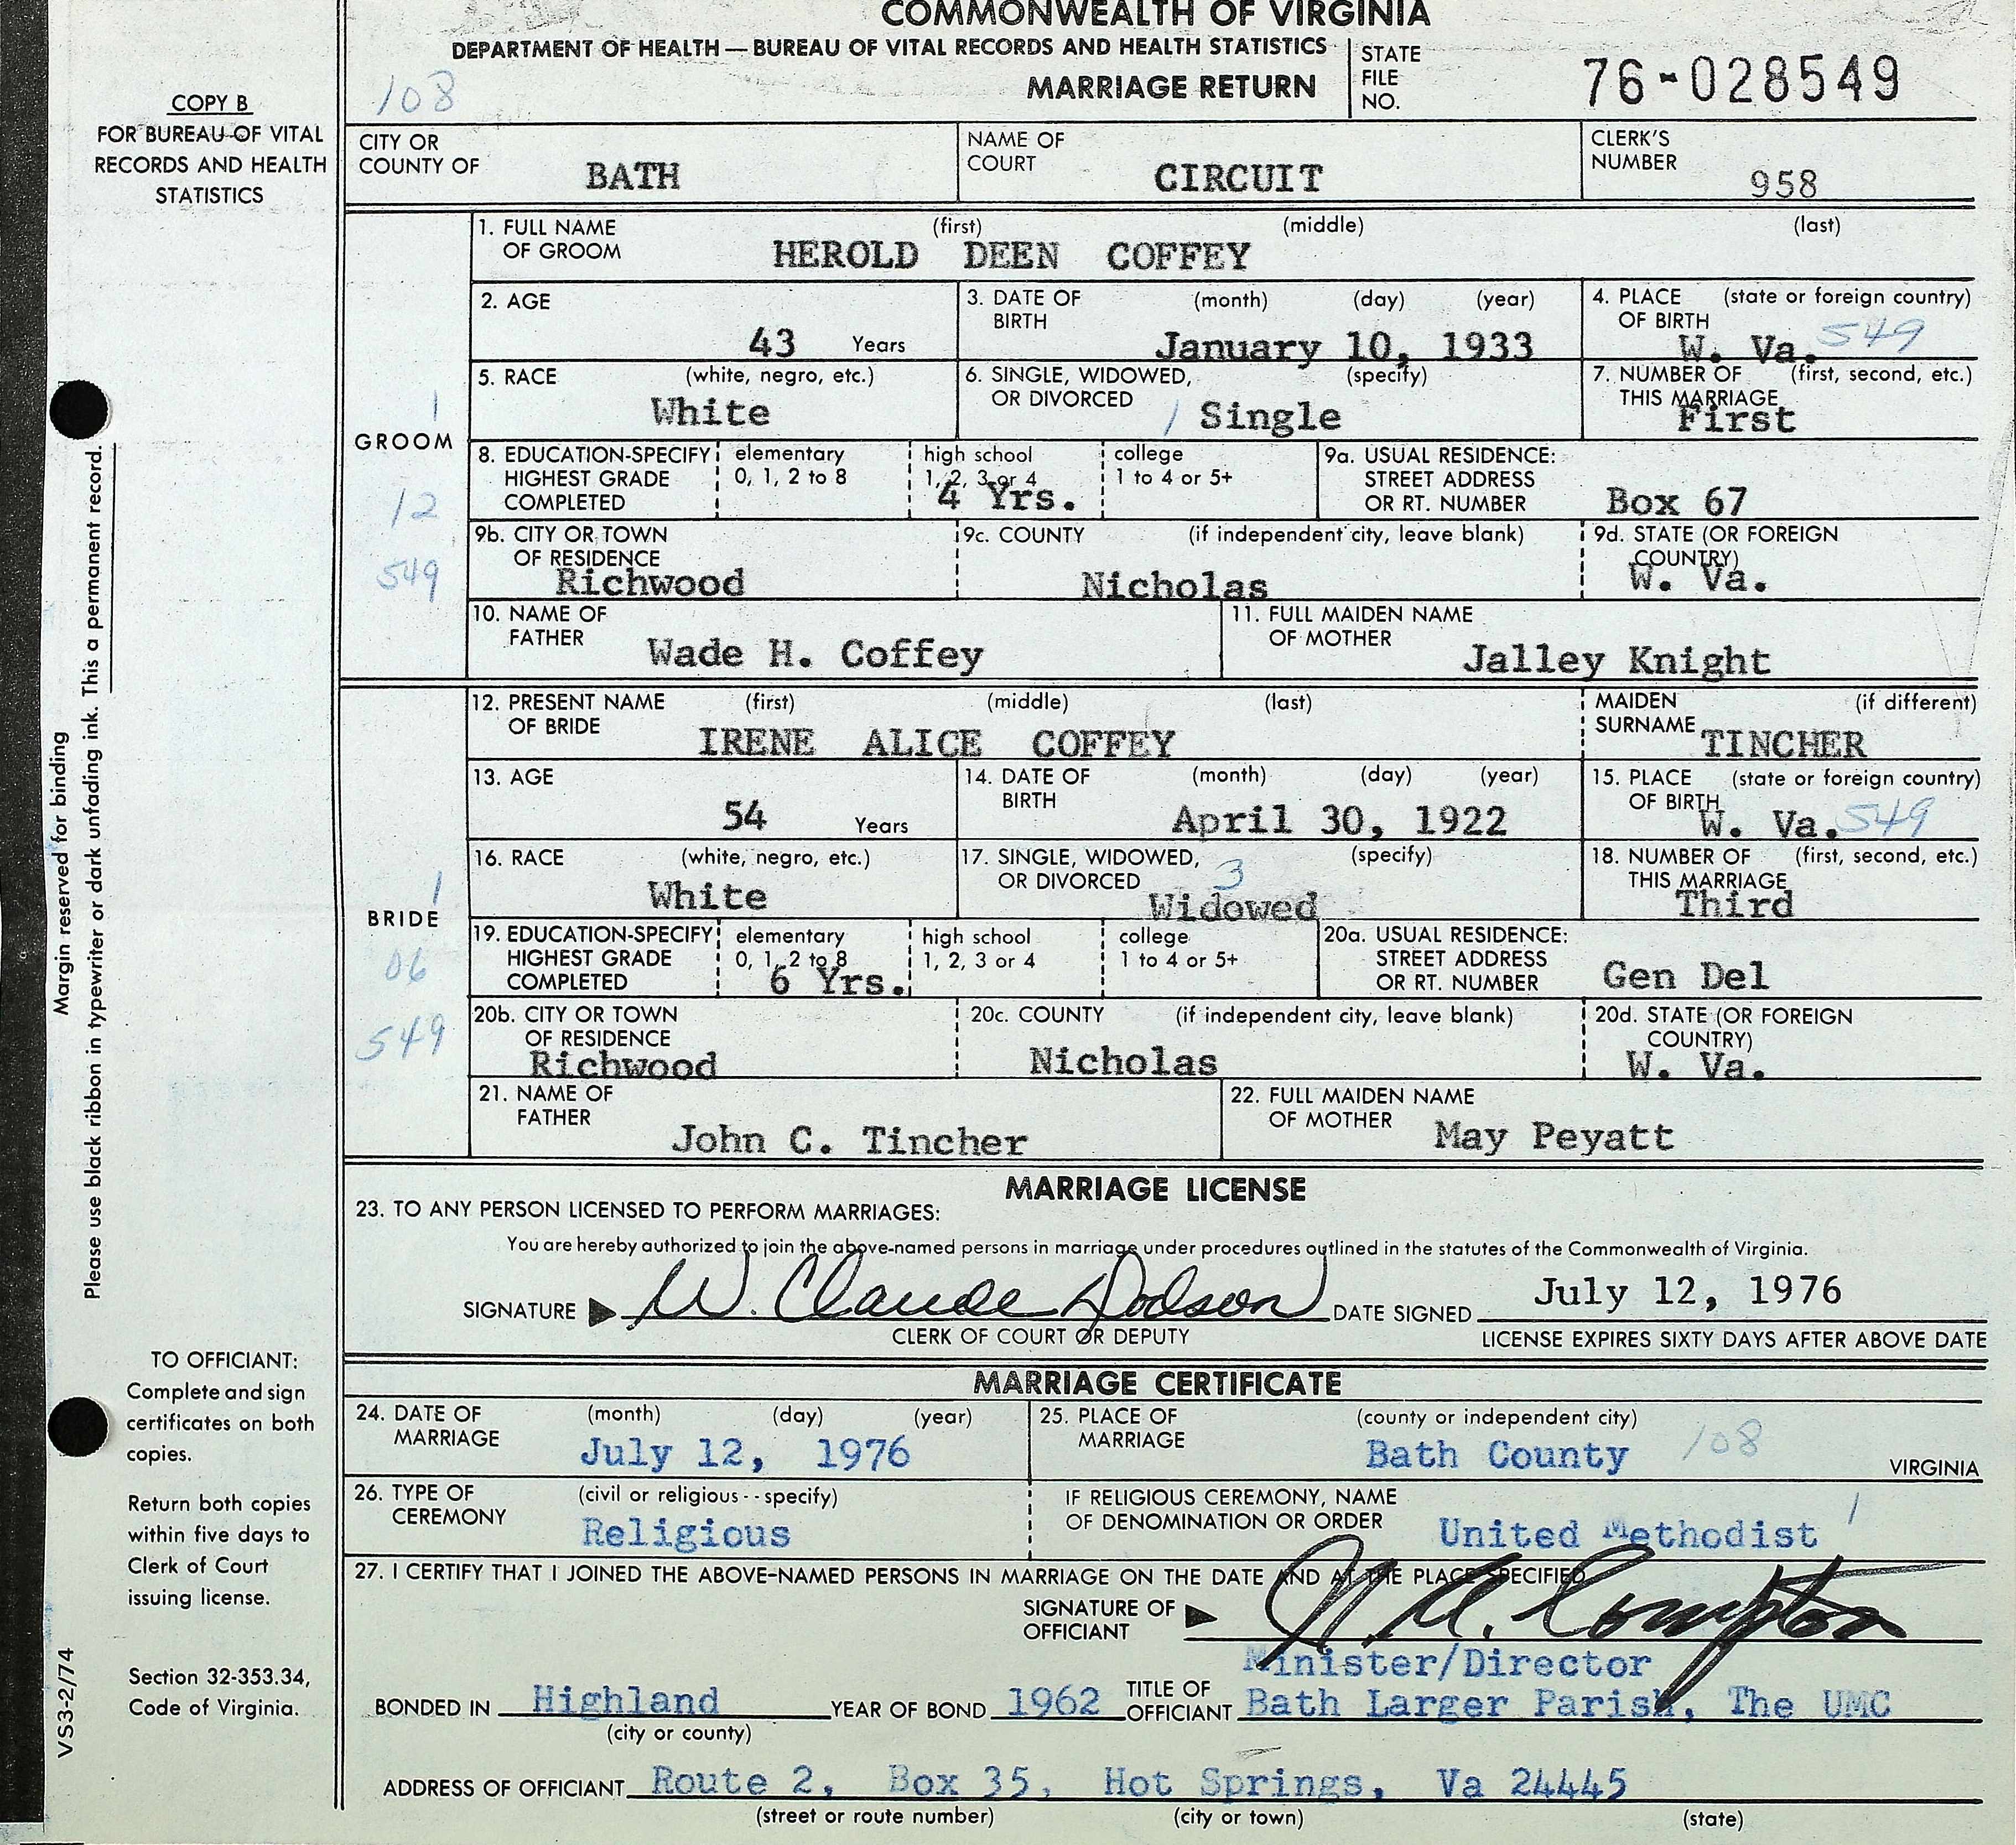 COMMONWEALTH OF VIRGINIA
DEPARTMENT OF HEALTH — BUREAU OF VITAL RECORDS AND HEALTH STATISTICS
MARRIAGE RETURN
STATE FILE NO. 76-028549
108
COPY B
FOR BUREAU OF VITAL
RECORDS AND HEALTH
STATISTICS
CITY OR COUNTY OF BATH
NAME OF COURT CIRCUIT
CLERK'S NUMBER 958
GROOM
1
12
549
1. FULL NAME OF GROOM (first) (middle) (last)
HEROLD DEEN COFFEY
2. AGE 43 Years
3. DATE OF BIRTH (month) (day) (year) January 10, 1933
4. PLACE OF BIRTH (state or foreign country) W. Va. 549
5. RACE (white, negro, etc.) White
6. SINGLE, WIDOWED, OR DIVORCED (specify) 1 Single
7. NUMBER OF THIS MARRIAGE (first, second, etc.) First
8. EDUCATION-SPECIFY HIGHEST GRADE COMPLETED
elementary 0, 1, 2 to 8
high school 1, 2, 3 or 4 4 Yrs.
college 1 to 4 or 5+
9a. USUAL RESIDENCE: STREET ADDRESS OR RT. NUMBER Box 67
9b. CITY OR TOWN OF RESIDENCE Richwood
9c. COUNTY (if independent city, leave blank) Nicholas
9d. STATE (OR FOREIGN COUNTRY) W. Va.
10. NAME OF FATHER Wade H. Coffey
11. FULL MAIDEN NAME OF MOTHER Jalley Knight
BRIDE
1
06
549
12. PRESENT NAME OF BRIDE (first) (middle) (last)
IRENE ALICE COFFEY
MAIDEN SURNAME (if different) TINCHER
13. AGE 54 Years
14. DATE OF BIRTH (month) (day) (year) April 30, 1922
15. PLACE OF BIRTH (state or foreign country) W. Va. 549
16. RACE (white, negro, etc.) White
17. SINGLE, WIDOWED, OR DIVORCED (specify) 3 Widowed
18. NUMBER OF THIS MARRIAGE (first, second, etc.) Third
19. EDUCATION-SPECIFY HIGHEST GRADE COMPLETED
elementary 0, 1, 2 to 8 6 Yrs.
high school 1, 2, 3 or 4
college 1 to 4 or 5+
20a. USUAL RESIDENCE: STREET ADDRESS OR RT. NUMBER Gen Del
20b. CITY OR TOWN OF RESIDENCE Richwood
20c. COUNTY (if independent city, leave blank) Nicholas
20d. STATE (OR FOREIGN COUNTRY) W. Va.
21. NAME OF FATHER John C. Tincher
22. FULL MAIDEN NAME OF MOTHER May Peyatt
MARRIAGE LICENSE
23. TO ANY PERSON LICENSED TO PERFORM MARRIAGES:
You are hereby authorized to join the above-named persons in marriage under procedures outlined in the statutes of the Commonwealth of Virginia.
SIGNATURE W. Claude Dodson DATE SIGNED July 12, 1976
CLERK OF COURT OR DEPUTY
LICENSE EXPIRES SIXTY DAYS AFTER ABOVE DATE
MARRIAGE CERTIFICATE
24. DATE OF MARRIAGE (month) (day) (year) July 12, 1976
25. PLACE OF MARRIAGE (county or independent city) Bath County 108 VIRGINIA
26. TYPE OF CEREMONY (civil or religious--specify) Religious
IF RELIGIOUS CEREMONY, NAME OF DENOMINATION OR ORDER United Methodist 1
27. I CERTIFY THAT I JOINED THE ABOVE-NAMED PERSONS IN MARRIAGE ON THE DATE AND AT THE PLACE SPECIFIED
SIGNATURE OF OFFICIANT Compton
BONDED IN Highland (city or county) YEAR OF BOND 1962
TITLE OF OFFICIANT Minister/Director
Bath Larger Parish, The UMC
ADDRESS OF OFFICIANT Route 2, Box 35, Hot Springs, Va 24445
(street or route number) (city or town) (state)
Margin reserved for binding
Please use black ribbon in typewriter or dark unfading ink. This a permanent record.
TO OFFICIANT:
Complete and sign
certificates on both
copies.
Return both copies
within five days to
Clerk of Court
issuing license.
Section 32-353.34,
Code of Virginia.
VS3-2/74